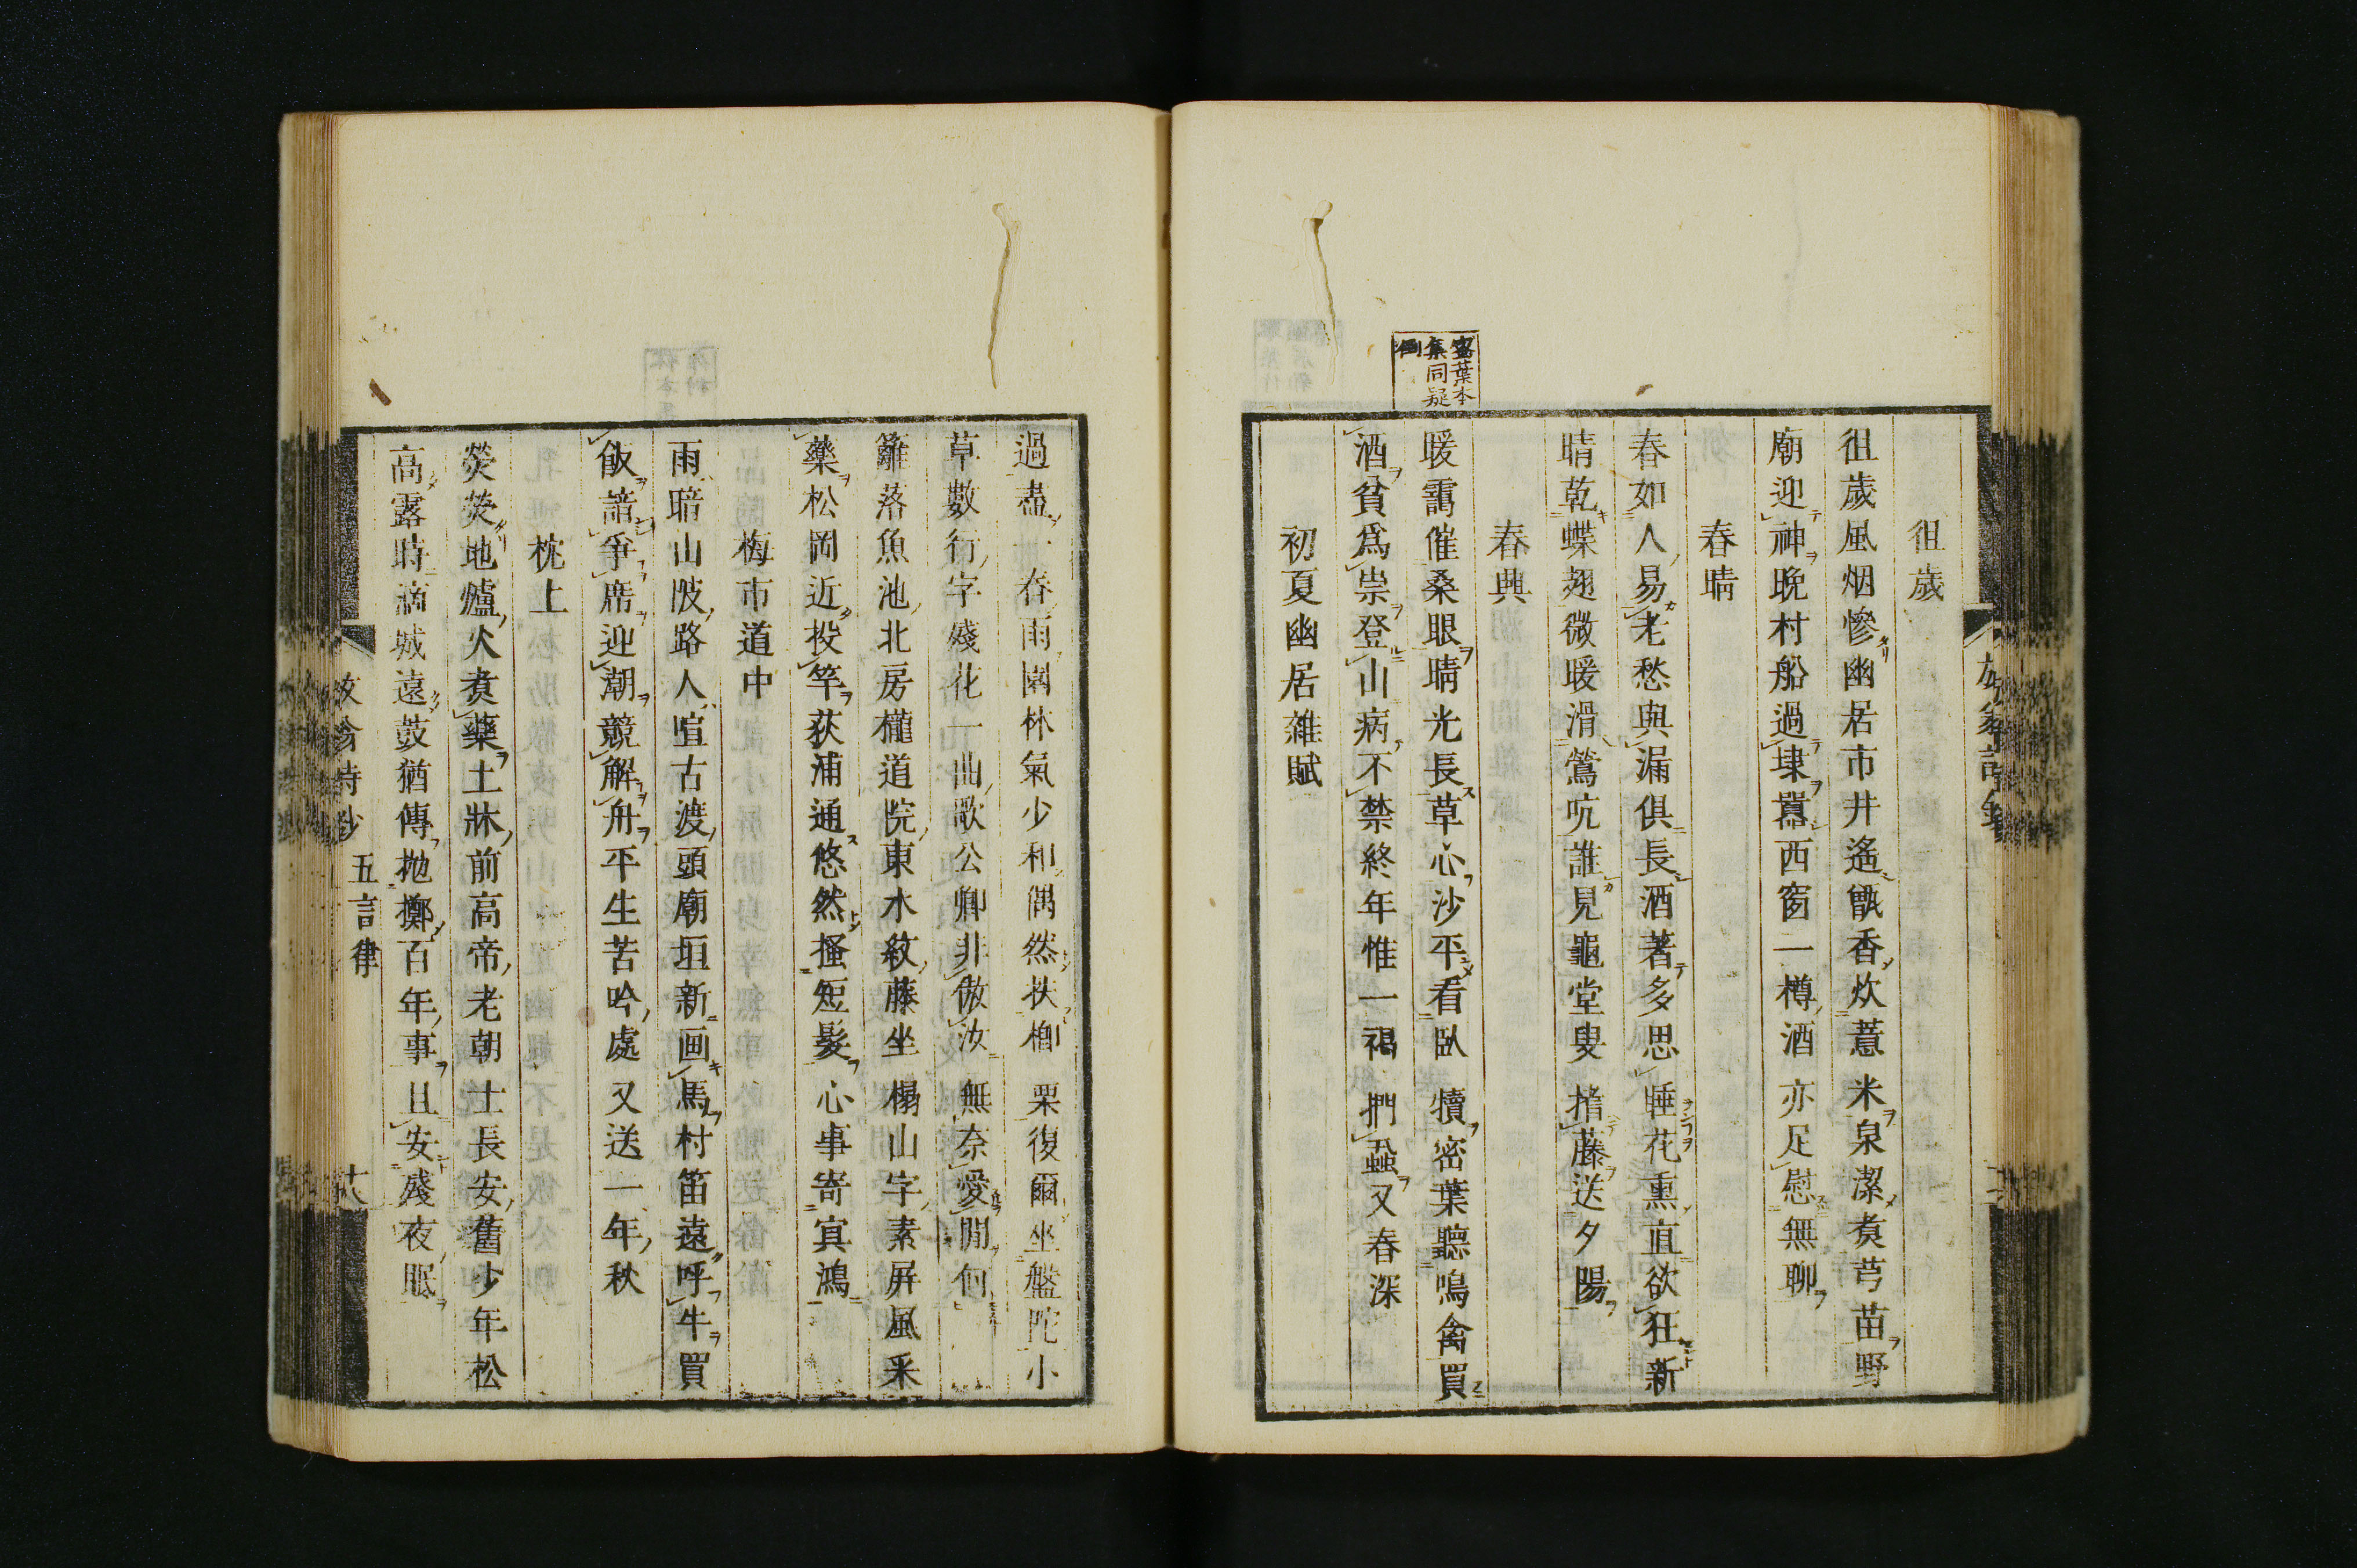 徂歲
徂歲風烟慘幽居市井遙甑香炊薏米泉潔煑芎苗野
廟迎神晚村船過埭囂西窗一樽酒亦足慰無聊
春晴
春如人易老愁與漏俱長酒著多思睡花熏直欲狂新
晴乾蝶翅微暖滑鶯吭誰見龜堂叟㨿藤送夕陽
春興
暖靄催桑眼晴光長草心沙平看臥犢密葉聽鳴禽買
酒貧爲祟登山病不禁終年惟一褐捫蝨又春深
初夏幽居雜賦
密葉本
集同疑
倒
過盡一春雨園林氣少和偶然扶櫛栗復爾坐盤陀小
草數行字殘花一曲歌公卿非傲汝無奈愛閒何
籬落魚池北房櫳道院東水紋藤坐榻山字素屏風采
藥松岡近投竿荻浦通悠然搔短髮心事寄冥鴻
梅市道中
雨暗山陂路人喧古渡頭廟垣新画馬村笛遠呼牛買
飯諳爭席迎潮競解舟平生苦吟處又送一年秋
枕上
熒熒地爐火煑藥土牀前高帝老朝士長安舊少年松
高露時滴城遠鼓猶傳拋擲百年事且安殘夜眠
放翁詩鈔 五言律 十八